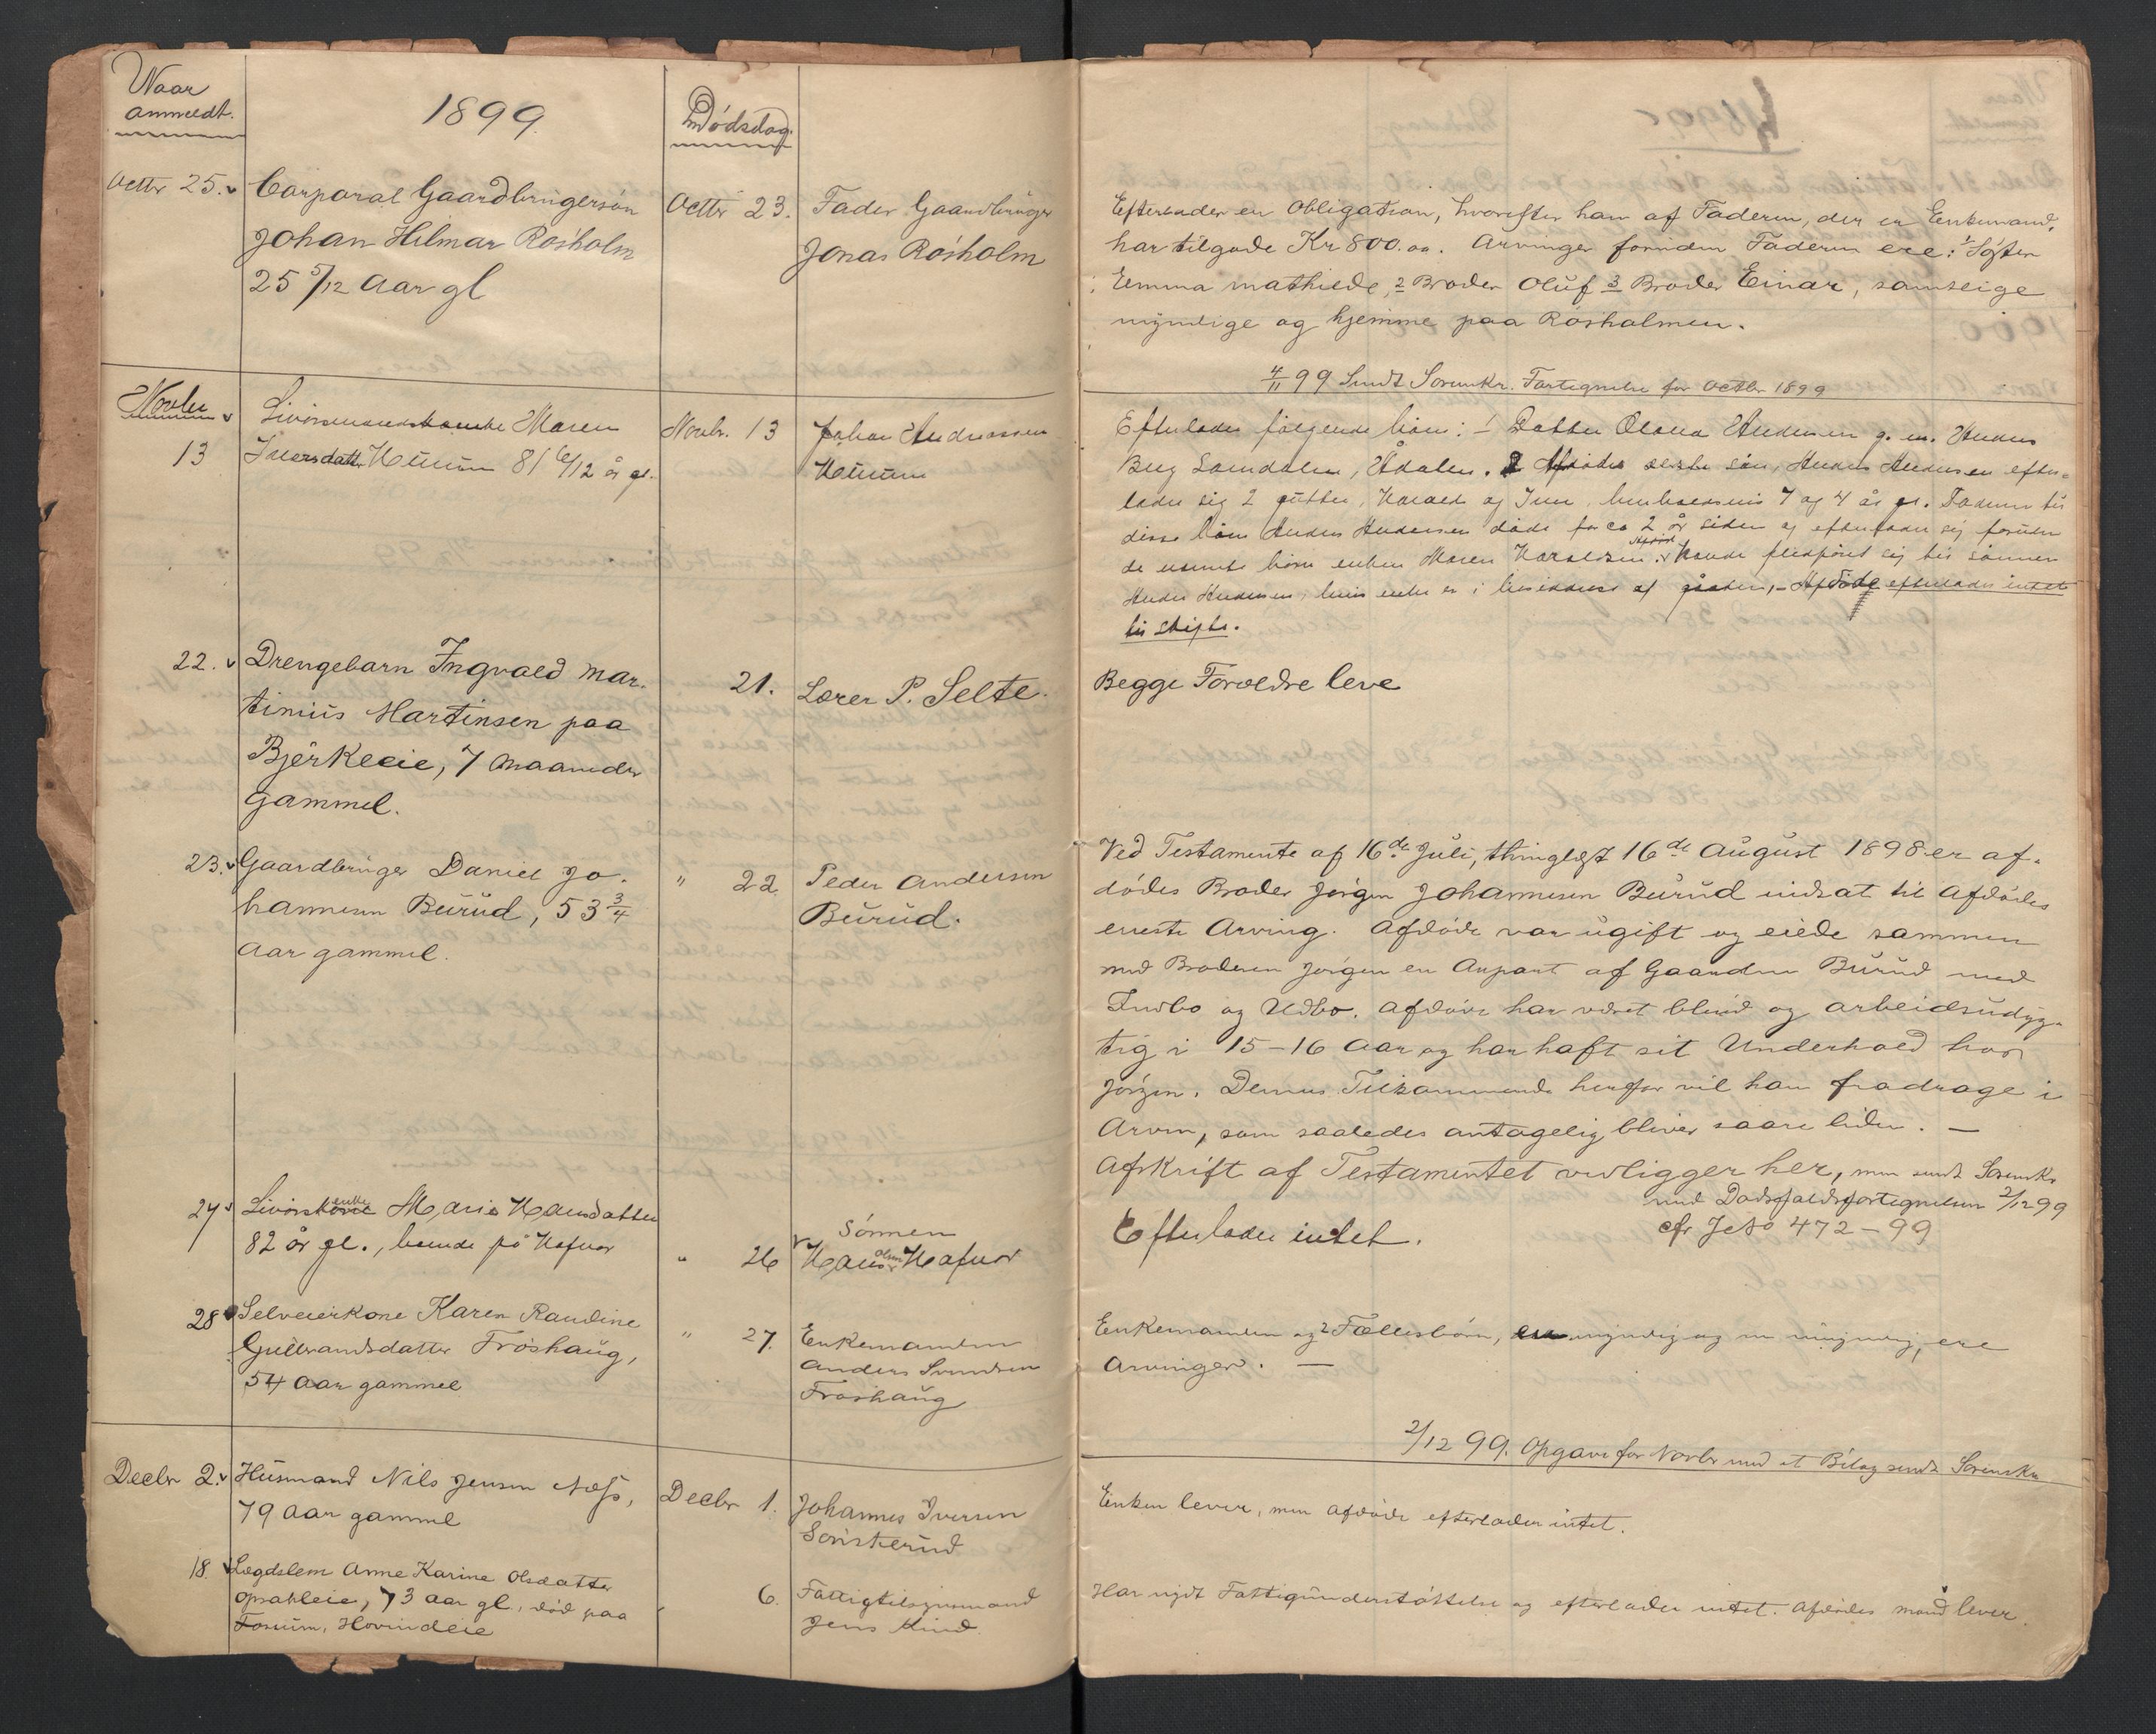 Naar
anmeldt.
1899.
Dødsdag.
Octbr 25.
Corporal Gaardbrugersøn
Johan Hilmar Røsholm
25 5/12 Aar gl
Octbr 23.
Fader Gaardbruger
Jonas Røsholm
Efterlader en Obligation, hvorefter han af Faderen, der er Enkemand,
har tilgode Kr 800.00. Arvinger foruden Faderen ere: 1 Søster
Emma Mathilde, 2 Broder Oluf 3 Broder Einar, samtlige
myndige og hjemme paa Røsholmen.
4/11 99 Sendt Sorenskr. Fortegnelse for Octbr 1899
Novbr
13
Livøremandsenke Maren
Iversdatter 81 6/12 år gl.
Novbr. 13
Johan Andreassen
Efterlader følgende børn: 1 Datter Olava Andersen g. m. Anders
Berg Somdalen, Ådalen. 2 Afdødes søn, Anders Andersen efter-
lader sig 2 gutter, Harald og Iver, henholdsvis 7 og 4 år gl. Faderen til
disse børn Anders Andersen døde for ca 2 år siden og efterlader sig foruden
de nævnte børn enken Maren Haraldsen. Afdøde havde sig til sønnen
Anders Andersen, hvis enke er i besiddelse af gården, - Afdøde efterlader intet
til skifte.
22.
Drengebarn Ingvald Mar-
tinius Martinsen paa
Bjerkeeie, 7 Maaneder
gammel.
21.
Lærer P. Selte.
Begge Forældre leve
23.
Gaardbruger Daniel Jo-
hannesen Burud, 53 3/4
Aar gammel.
" 22
Peder Andersen
Burud.
Ved Testamente af 16de Juli, thinglæst 16de August 1898 er af-
dødes Broder Jørgen Johannesen Burud indsat til Afdødes
eneste Arving. Afdøde var ugift og eiede sammen
med Broderen Jørgen en Anpart af Gaarden Burud med
Indbo og Udbo. Afdøde har været blind og arbeidsudyg-
tig i 15-16 Aar og har haft sit Underhold hos
Jørgen. Dennes Tilkommende herfor vil han fradrage i
Arven, som saaledes antagelig bliver saare liden. —
Afskrift af Testamentet vedligger her, men sendt Sorenskr
med Dødsfaldsfortegnelsen 2/12 99
cfr J No 472-99
27
Livørskone enke Marie Hansdatter
82 år gl., boende på Hafnor
" 26
Sønnen
Hans Olsen Hafnor
Efterlader intet.
28
Selveierkone Karen Randine
Gulbrandsdatter Frøshaug,
54 Aar gammel
" 27.
Enkemanden
Anders Svendsen
Frøshaug
Enkemanden og 2 Fællesbørn, en myndig og en umyndig, ere
Arvinger. —
2/12 99. Opgave for Novbr med et Bilag sendt Sorenskr
Decbr 2.
Husmand Nils Jensen Næss,
79 Aar gammel
Decbr 1.
Johannes Iversen
Sønsterud
Enken lever, men afdøde efterlader intet.
18.
Lægdslem Anne Karine Olsdatter
Opsahleie, 73 Aar gl., død paa
Hovindeie
6.
Fattigtilsynsmand
Jens Lind
Har nydt Fattigunderstøttelse og efterlader intet. Afdødes mand lever.